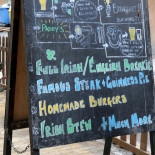 &
Full Irish/English Breakfast
Famous Steak & Guinness Pie
Homemade Burgers
Irish Stew & Much More